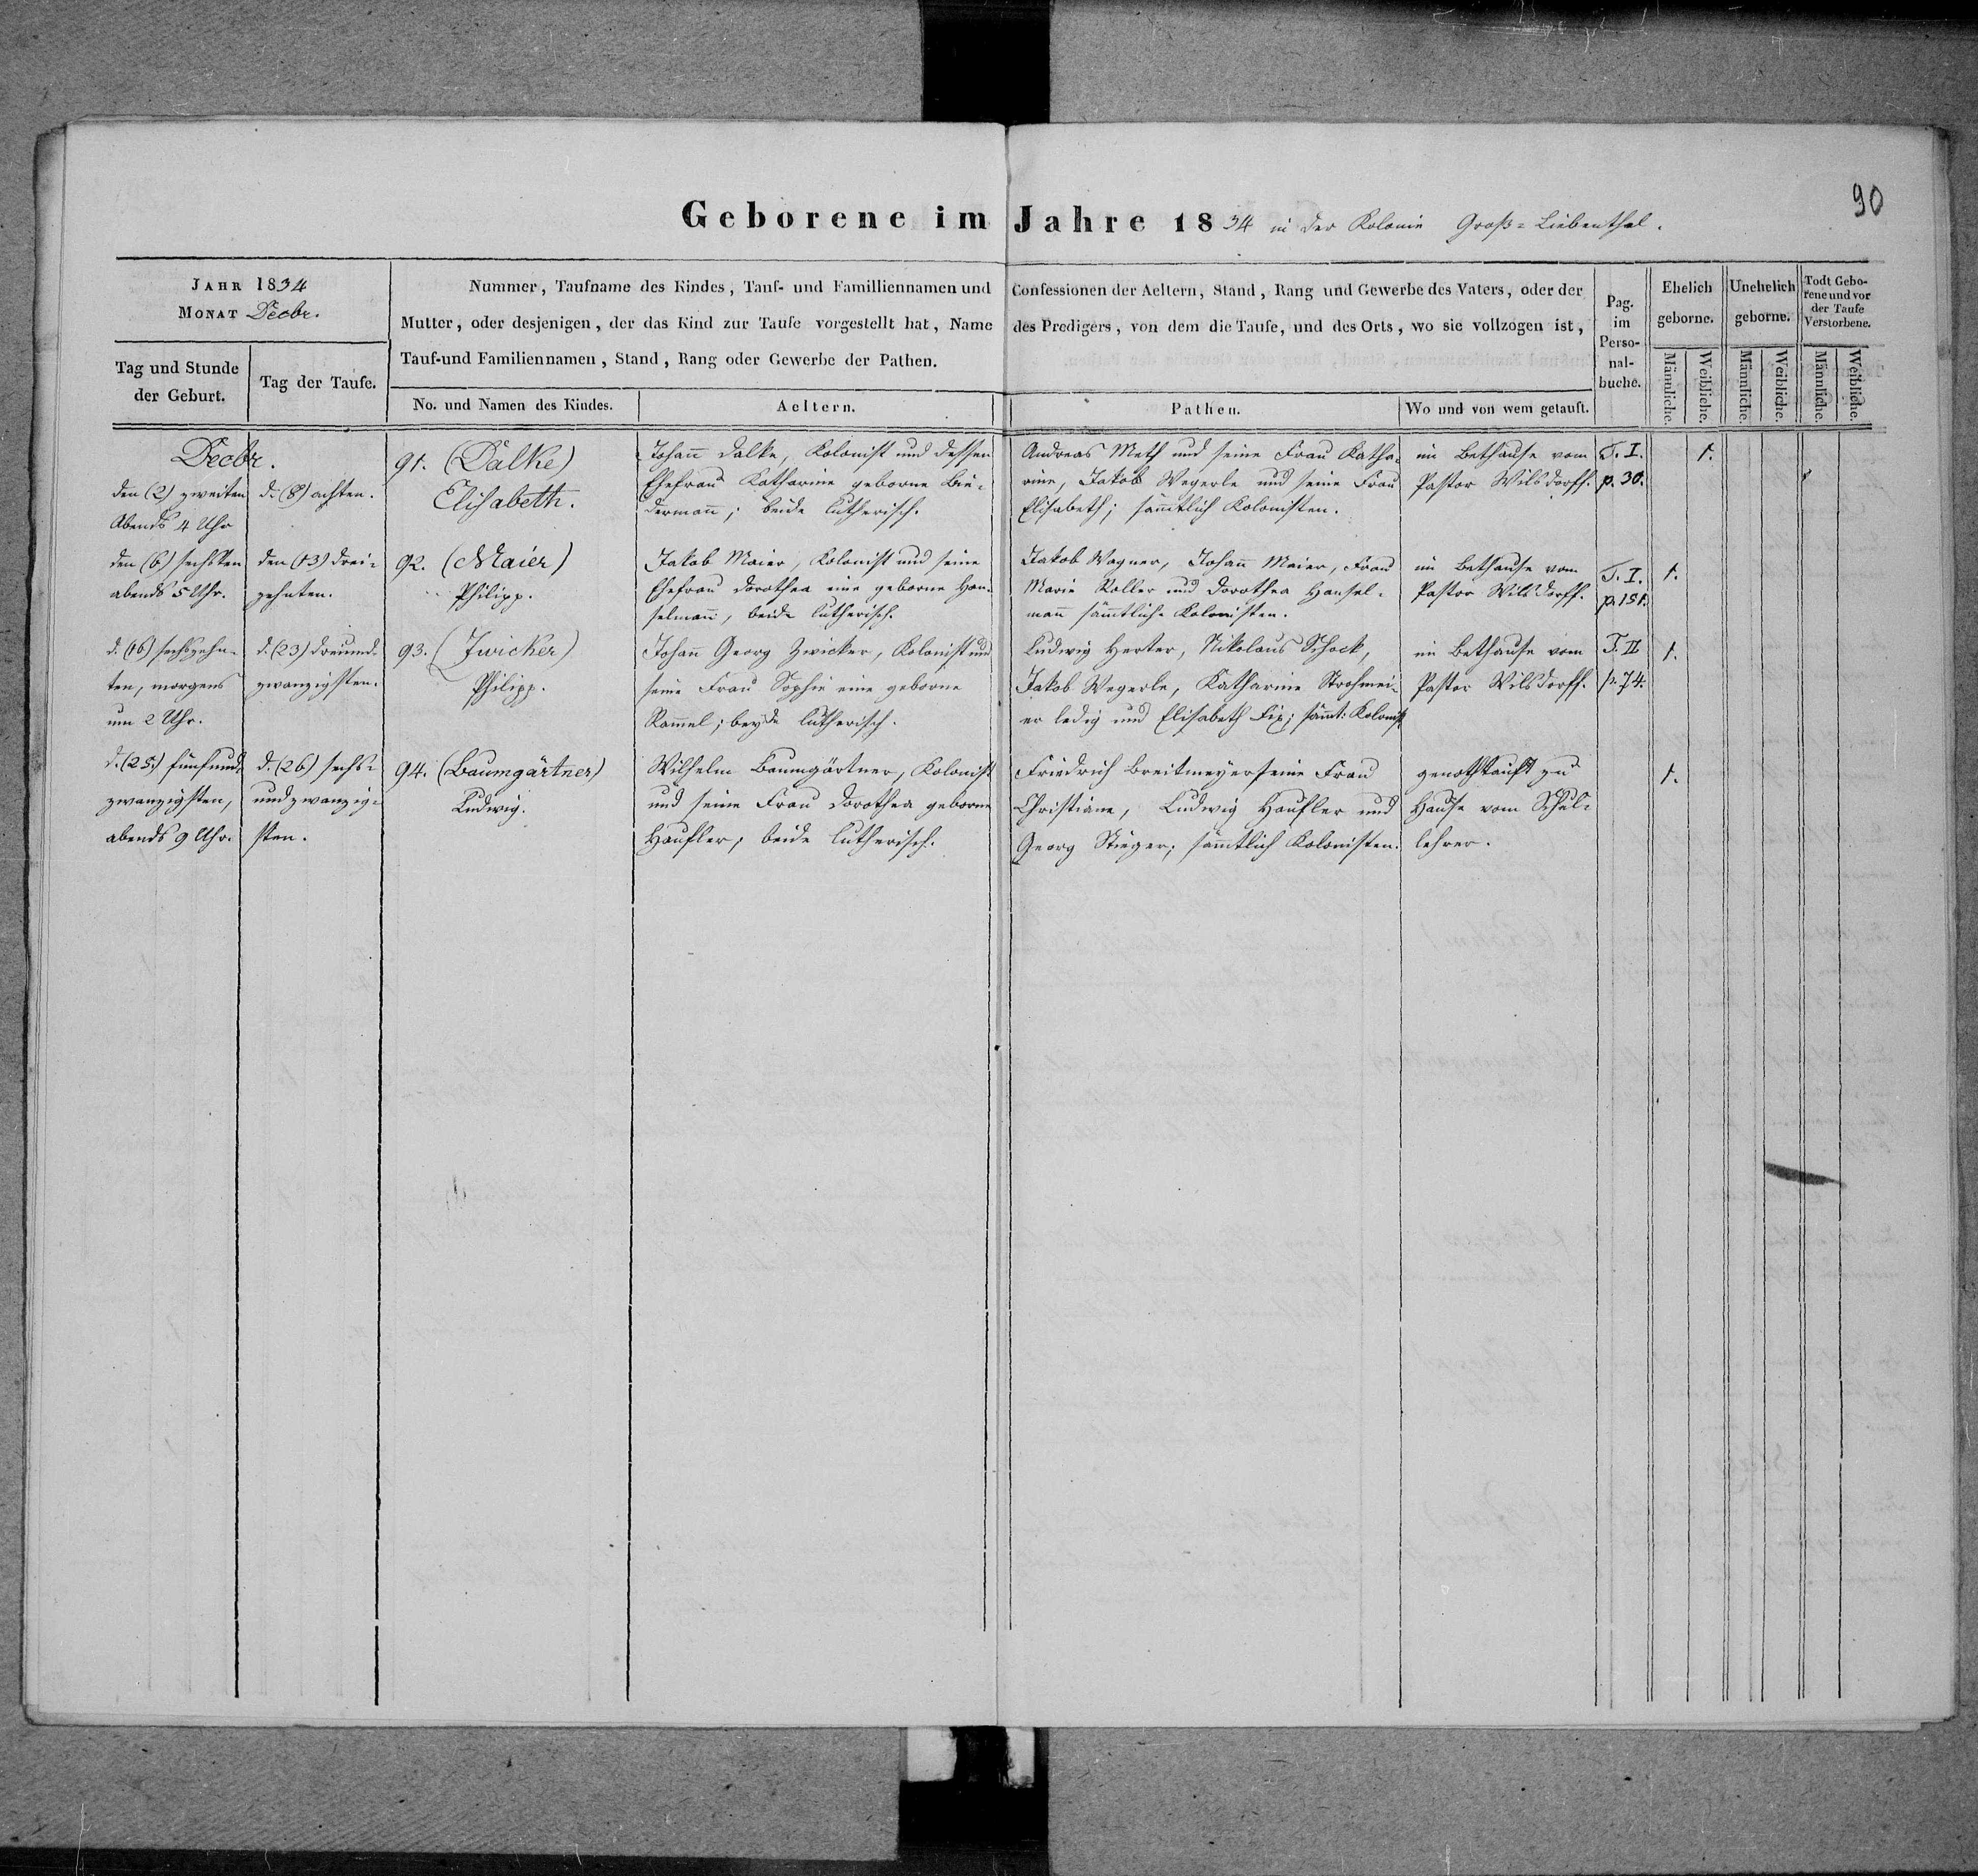 90
Geborene im Jahre 1834 in der Kolonie Groß-Liebenthal.
JAHR 1834
MONAT Decbr.
Tag und Stunde der Geburt.
Tag der Taufe.
Nummer, Taufname des Kindes, Tauf- und Familliennamen und Confessionen der Aeltern, Stand, Rang und Gewerbe des Vaters, oder der
Mutter, oder desjenigen, der das Kind zur Taufe vorgestellt hat, Name des Predigers, von dem die Taufe, und des Orts, wo sie vollzogen ist,
Tauf-und Familiennamen, Stand, Rang oder Gewerbe der Pathen.
No. und Namen des Kindes.
Aeltern.
Pathen.
Wo und von wem getauft.
Pag. im Perso-nal-buche.
Ehelich geborne.
Unehelich geborne.
Todt Gebo-rene und vor der Taufe Verstorbene.
Männliche.
Weibliche.
Männliche.
Weibliche.
Männliche.
Weibliche.
Decbr.
den (2) zweiten
Abends 4 Uhr
d. (8) achten.
91. (Dalke)
Elisabeth.
Johann Dalke, Kolonist und dessen
Ehefrau Katharine geborne Bie-
dermann; beide lutherisch.
Andreas Meth und seine Frau Katha-
rine, Jakob Wegerle und seine Frau
Elisabeth; sämtlich Kolonisten.
im Bethause vom
Pastor Wilsdorff.
T. I.
p. 30.
1.
den (6) sechsten
abends 5 Uhr.
den (13) drei-
zehnten.
92. (Maier)
Philipp.
Jakob Maier, Kolonist und seine
Ehefrau Dorothea eine geborne Han-
selmann, beide lutherisch.
Jakob Wagner, Johann Maier, Frau
Marie Koller und Dorothea Hansel-
mann sämmtliche Kolonisten.
im Bethause vom
Pastor Wilsdorff.
T. I.
p. 151.
1.
d. (16) sechszehn-
ten, morgens
um 2 Uhr.
d. (23) dreiund-
zwanzigsten.
93. (Zwicker)
Philipp.
Johann Georg Zwicker, Kolonist und
seine Frau Sophie eine geborne
Rammel; beyde lutherisch.
Ludwig Herter, Nikolaus Schock,
Jakob Wegerle, Katharine Strohmei-
er ledig und Elisabeth Fix; sämt: Kolonist.
im Bethause vom
Pastor Wilsdorff.
T. II
p. 74.
1.
d. (25) fünfund-
zwanzigsten,
abends 9 Uhr.
d. (26) sechs-
undzwanzig-
sten.
94. (Baumgärtner)
Ludwig.
Wilhelm Baumgärtner, Kolonist
und seine Frau Dorothea geborne
Häußler; beide lutherisch.
Friedrich Breitmeyer seine Frau
Christiane, Ludwig Häußler und
Georg Stieger; sämtlich Kolonisten.
genothtauft zu
Hause vom Schul-
lehrer.
1.